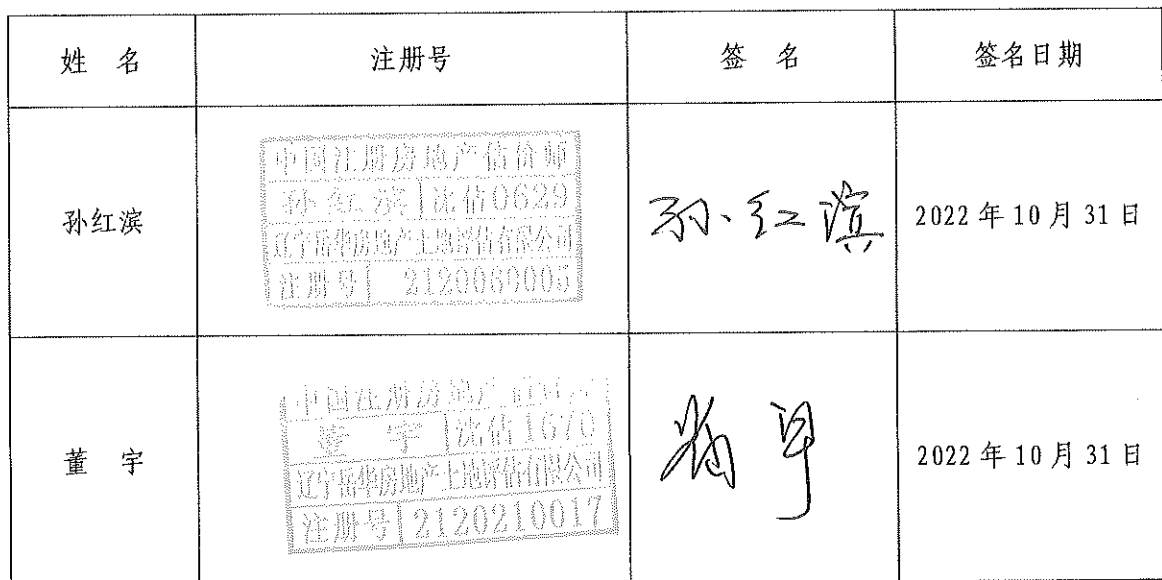 姓 名 注册号 签 名 签名日期
中国注册房地产估价师
孙红滨 沈估0629
辽宁岳华房地产土地评估有限公司
注册号 2120060005
孙红滨 孙红滨 2022年10月31日
中国注册房地产估价师
董 宇 沈估1670
辽宁岳华房地产土地评估有限公司
注册号 2120210017
董 宇 2022年10月31日